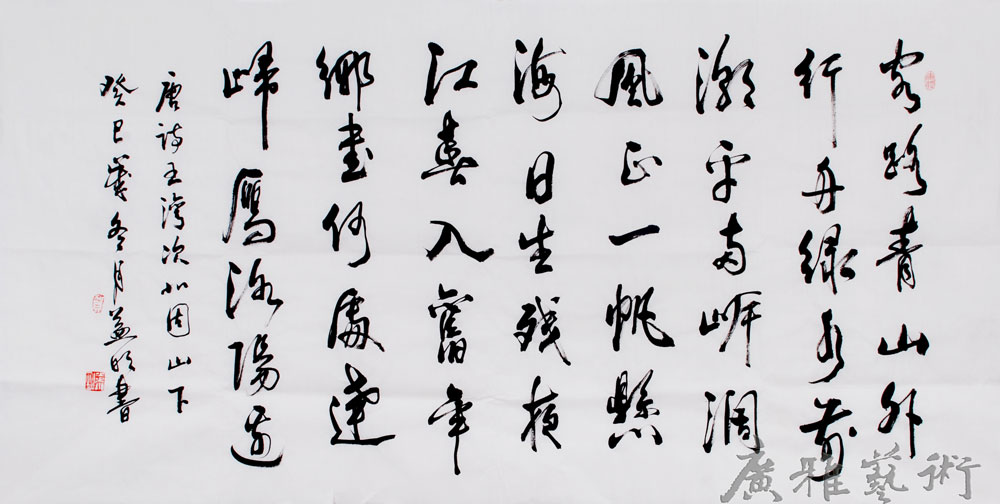 客路青山外
行舟緑水前
潮平両岸濶
風正一帆懸
海日生殘夜
江春入舊年
鄉書何處達
歸鴈洛陽邊
唐詩王灣次北固山下
癸巳歲冬月書
廣雅藝術